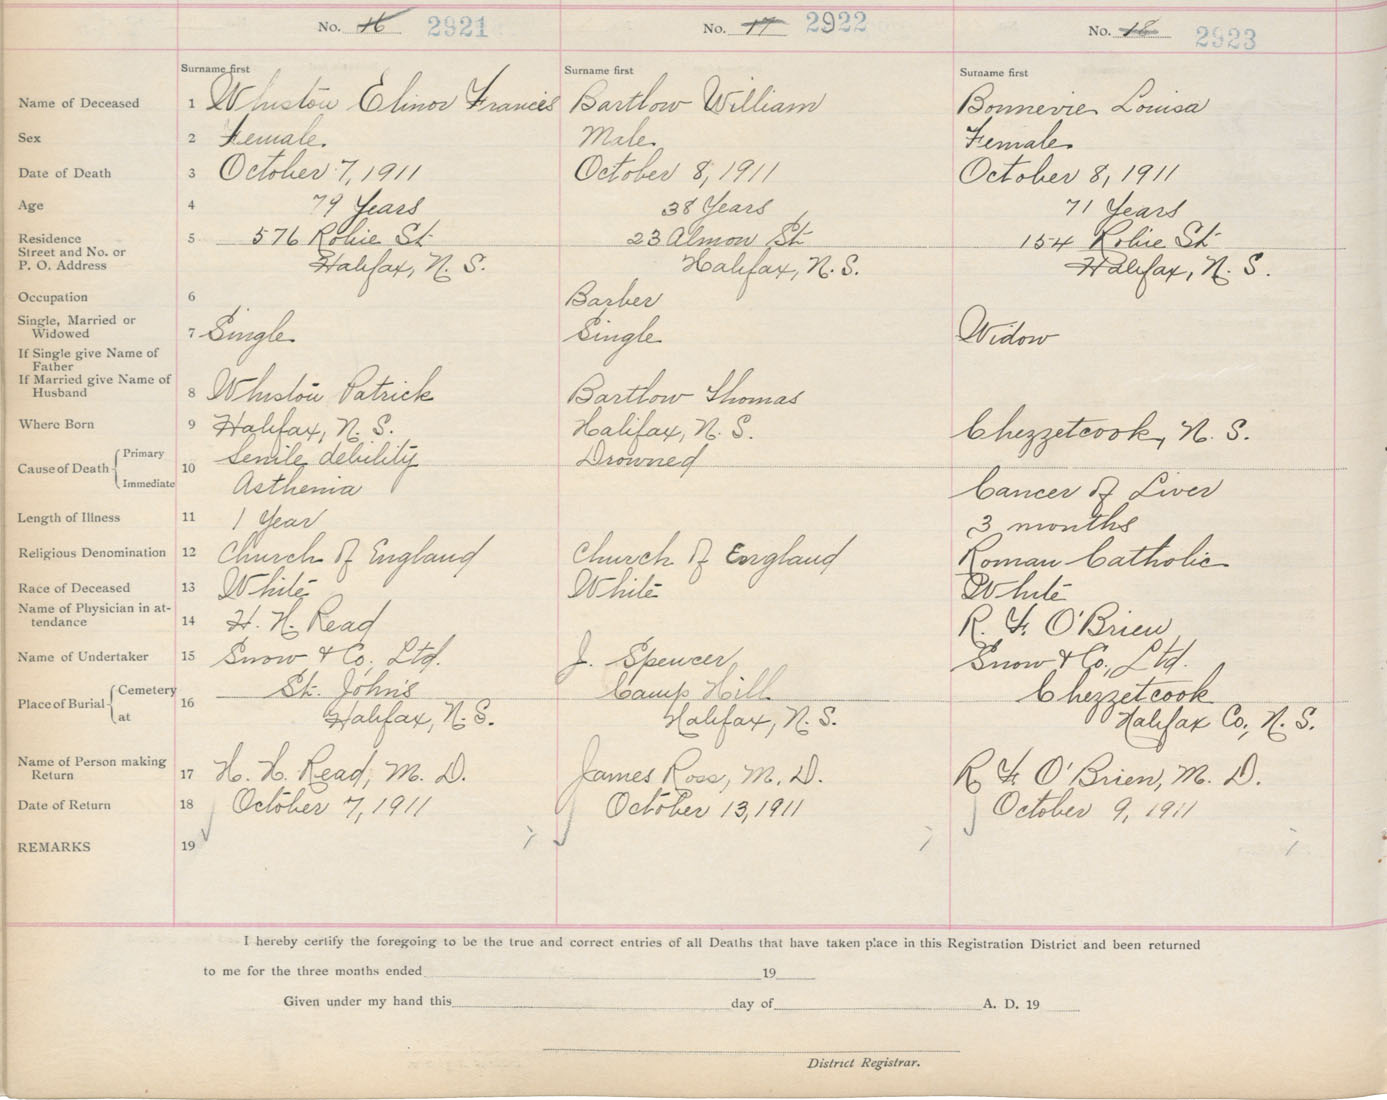 No. 16 2921 No. 17 2922 No. 18 2923
Surname first Surname first Surname first
Name of Deceased 1 Whiston Elinor Francis Bartlow William Bonnevie Louisa
Sex 2 Female. Male. Female.
Date of Death 3 October 7, 1911 October 8, 1911 October 8, 1911
Age 4 79 Years 38 Years 71 Years
Residence 5 576 Robie St. 23 Almon St. 154 Robie St.
Street and No. or
P. O. Address Halifax, N. S. Halifax, N. S. Halifax, N. S.
Occupation 6 Barber
Single, Married or
Widowed 7 Single. Single. Widow
If Single give Name of
Father
If Married give Name of
Husband 8 Whiston Patrick Bartlow Thomas
Where Born 9 Halifax, N. S. Halifax, N. S. Chezzetcook, N. S.
Cause of Death Primary 10 Senile debility Drowned
Immediate Asthenia Cancer of Liver
Length of Illness 11 1 Year 3 months
Religious Denomination 12 Church of England Church of England Roman Catholic
Race of Deceased 13 White White White
Name of Physician in at-
tendance 14 H. H. Read R. F. O'Brien
Name of Undertaker 15 Snow & Co., Ltd. J. Spencer Snow & Co., Ltd.
Place of Burial Cemetery 16 St. John's Camp Hill Chezzetcook
at Halifax, N. S. Halifax, N. S. Halifax Co., N. S.
Name of Person making
Return 17 H. H. Read, M. D. James Ross, M. D. R. F. O'Brien, M. D.
Date of Return 18 October 7, 1911 October 13, 1911 October 9, 1911
REMARKS 19
I hereby certify the foregoing to be the true and correct entries of all Deaths that have taken place in this Registration District and been returned
to me for the three months ended 19
Given under my hand this day of A. D. 19
District Registrar.